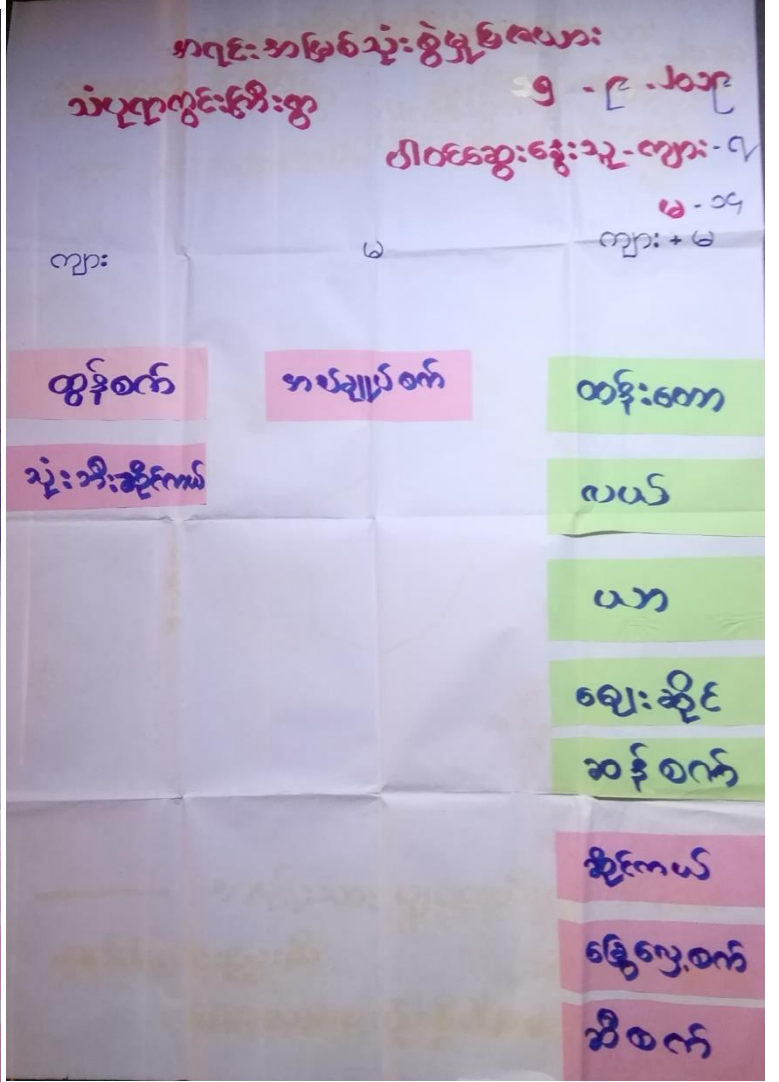 အရင်းအမြစ်သုံးစွဲမှုဇယား
သံပုရာကွင်းကြီးရွာ
၁၅ - ၉ - ၂၀၁၉
ပါဝင်ဆွေးနွေးသူ - ကျား - ၇
မ - ၁၄
ကျား
မ
ကျား + မ
ထွန်စက်
အပ်ချုပ်စက်
ထန်းတော
သုံးဘီးဆိုင်ကယ်
လယ်
ယာ
ဈေးဆိုင်
ဆန်စက်
ဆိုင်ကယ်
ခြွေလှေ့စက်
ဆီစက်